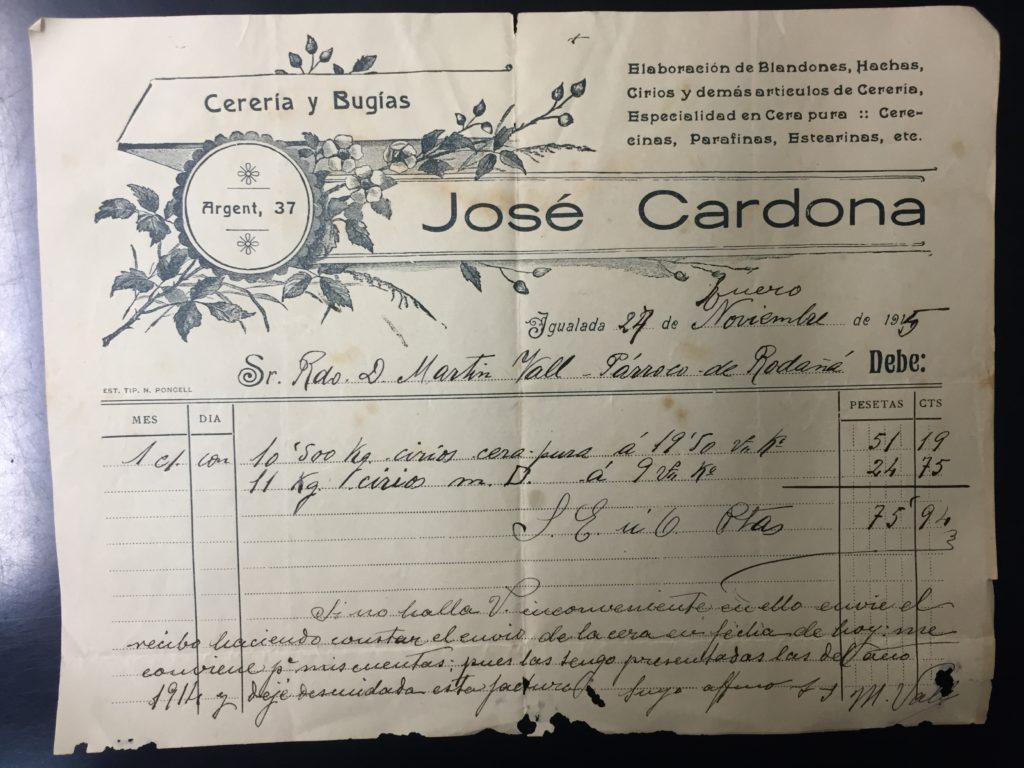 Cerería y Bugías
Argent, 37
Elaboración de Blandones, Hachas,
Cirios y demás articulos de Cerería,
Especialidad en Cera pura :: Cere-
cinas, Parafinas, Estearinas, etc.
José Cardona
Enero
Igualada 27 de Noviembre de 1915
Sr. Rdo. D. Martín Vall - Párroco de Rodañá Debe:
EST. TIP. N. PONCELL
MES DIA PESETAS CTS
1 c/. con 10'500 Kg. cirios cera pura á 19'50 Vn Kº 51 19
11 Kg cirios m. D. á 9 Vn Kº 24 75
S. E. ú O. Ptas 75 94
Si no halla V. inconveniente en ello envie el
recibo haciendo constar el envio de la cera en fecha de hoy: me
conviene pª mis cuentas: pues las tengo presentadas las del año
1914 y dejé descuidada esta factura. Suyo affmo S S M. Vall